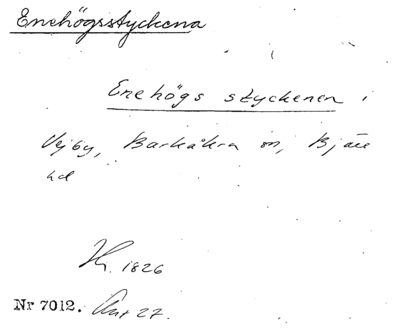 Enehögsstyckena
Enehögs styckenen i
Vejby, Barkåkra sn, Bjäre
hd
H. 1826
Nr 7012. Ant 27.